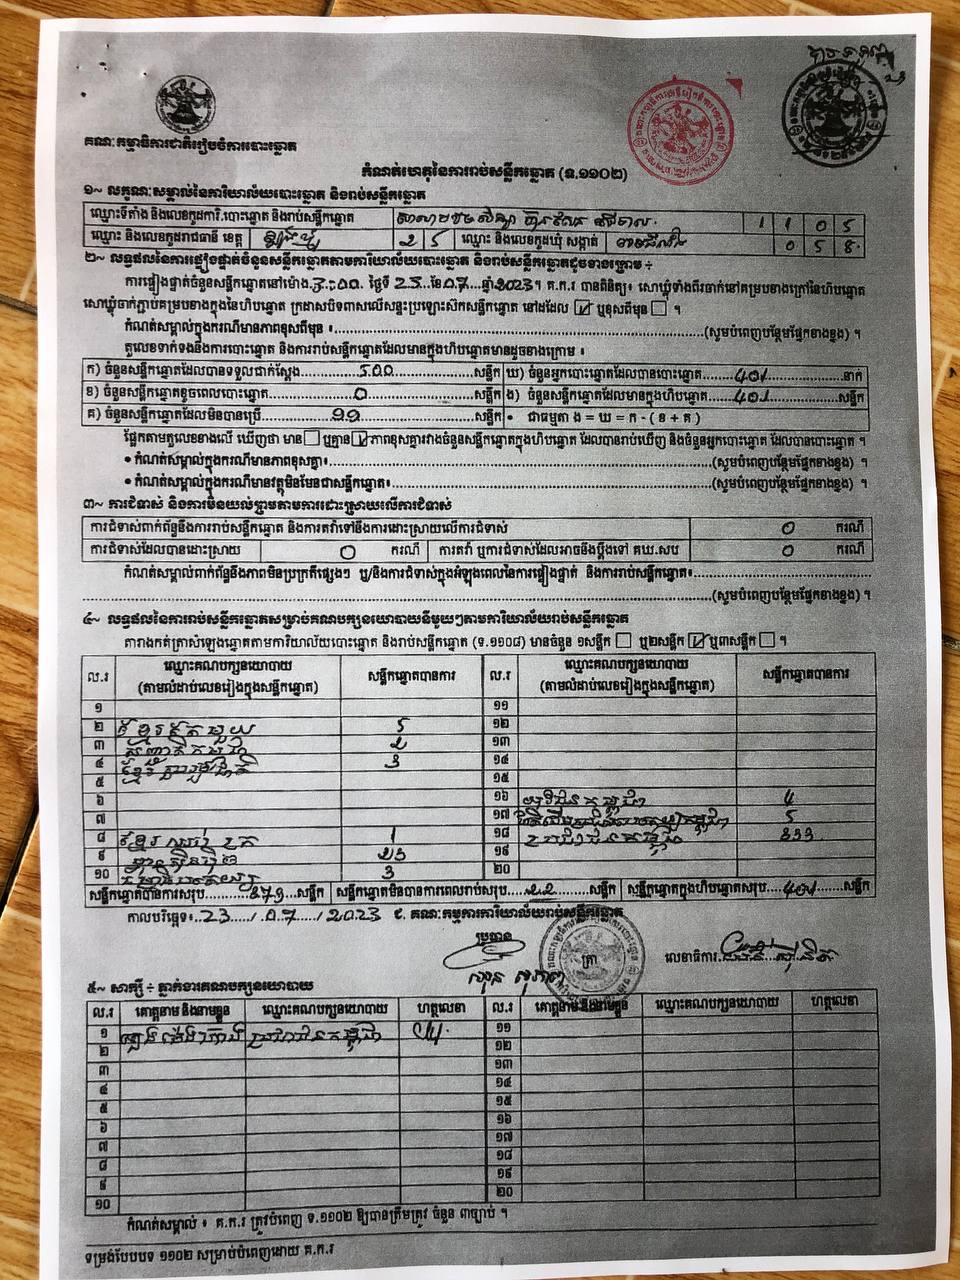 គណៈកម្មាធិការជាតិរៀបចំការបោះឆ្នោត
កំណត់ហេតុនៃការរាប់សន្លឹកឆ្នោត (ទ.១១០២)
១~ លក្ខណៈសម្គាល់នៃការិយាល័យបោះឆ្នោត និងរាប់សន្លឹកឆ្នោត
ឈ្មោះទីតាំង និងលេខកូដការិ.បោះឆ្នោត និងរាប់សន្លឹកឆ្នោត 1 1 0 5
ឈ្មោះ និងលេខកូដរាជធានី ខេត្ត ត្បូងឃ្មុំ 2 5 ឈ្មោះ និងលេខកូដឃុំ សង្កាត់ 0 5 8
២~ លទ្ធផលនៃការផ្ទៀងផ្ទាត់ចំនួនសន្លឹកឆ្នោតតាមការិយាល័យបោះឆ្នោត និងរាប់សន្លឹកឆ្នោតដូចខាងក្រោម ÷
ការផ្ទៀងផ្ទាត់ចំនួនសន្លឹកឆ្នោតនៅម៉ោង 3:00 ថ្ងៃទី 23 ខែ 07 ឆ្នាំ 2023។ គ.ក.រ បានពិនិត្យ៖ សោឃ្នុំទាំងពីរចាក់នៅគម្របខាងក្រៅនៃហិបឆ្នោត
សោឃ្នុំចាក់ភ្ជាប់គម្របខាងក្នុងនៃហិបឆ្នោត ក្រដាសបិទពាសលើសន្ទះប្រឡោះស៊កសន្លឹកឆ្នោត នៅដដែល ☑ ឬខុសពីមុន ☐ ។
កំណត់សម្គាល់ក្នុងករណីមានភាពខុសពីមុន ៖ (សូមបំពេញបន្ថែមផ្នែកខាងខ្នង) ។
តួលេខទាក់ទងនឹងការបោះឆ្នោត និងការរាប់សន្លឹកឆ្នោតដែលមានក្នុងហិបឆ្នោតមានដូចខាងក្រោម ៖
ក) ចំនួនសន្លឹកឆ្នោតដែលបានទទួលជាក់ស្តែង 500 សន្លឹក ឃ) ចំនួនអ្នកបោះឆ្នោតដែលបានបោះឆ្នោត 401 នាក់
ខ) ចំនួនសន្លឹកឆ្នោតខូចពេលបោះឆ្នោត 0 សន្លឹក ង) ចំនួនសន្លឹកឆ្នោតដែលមានក្នុងហិបឆ្នោត 401 សន្លឹក
គ) ចំនួនសន្លឹកឆ្នោតដែលមិនបានប្រើ 99 សន្លឹក • ជាធម្មតា ង = ឃ = ក - ( ខ + គ )
ផ្អែកតាមតួលេខខាងលើ ឃើញថា មាន ☐ ឬគ្មាន ☑ ភាពខុសគ្នារវាងចំនួនសន្លឹកឆ្នោតក្នុងហិបឆ្នោត ដែលបានរាប់ឃើញ និងចំនួនអ្នកបោះឆ្នោត ដែលបានបោះឆ្នោត ។
• កំណត់សម្គាល់ក្នុងករណីមានភាពខុសគ្នា៖ (សូមបំពេញបន្ថែមផ្នែកខាងខ្នង) ។
• កំណត់សម្គាល់ក្នុងករណីមានវត្ថុមិនមែនជាសន្លឹកឆ្នោត៖ (សូមបំពេញបន្ថែមផ្នែកខាងខ្នង) ។
៣~ ការជំទាស់ និងការមិនយល់ព្រមតាមការដោះស្រាយលើការជំទាស់
ការជំទាស់ពាក់ព័ន្ធនឹងការរាប់សន្លឹកឆ្នោត និងការតវ៉ាទៅនឹងការដោះស្រាយលើការជំទាស់ 0 ករណី
ការជំទាស់ដែលបានដោះស្រាយ 0 ករណី ការតវ៉ា ឬការជំទាស់ដែលអាចនឹងប្តឹងទៅ គឃ.សប 0 ករណី
កំណត់សម្គាល់ពាក់ព័ន្ធនឹងភាពមិនប្រក្រតីផ្សេងៗ ឬ/និងការជំទាស់ក្នុងអំឡុងពេលនៃការផ្ទៀងផ្ទាត់ និងការរាប់សន្លឹកឆ្នោត៖
(សូមបំពេញបន្ថែមផ្នែកខាងខ្នង) ។
៤~ លទ្ធផលនៃការរាប់សន្លឹកឆ្នោតសម្រាប់គណបក្សនយោបាយនីមួយៗតាមការិយាល័យរាប់សន្លឹកឆ្នោត
តារាងកត់ត្រាសំឡេងឆ្នោតតាមការិយាល័យបោះឆ្នោត និងរាប់សន្លឹកឆ្នោត (ទ.១១០៨) មានចំនួន ១សន្លឹក ☐ ឬ២សន្លឹក ☑ ឬ៣សន្លឹក ☐ ។
ល.រ ឈ្មោះគណបក្សនយោបាយ (តាមលំដាប់លេខរៀងក្នុងសន្លឹកឆ្នោត) សន្លឹកឆ្នោតបានការ ល.រ ឈ្មោះគណបក្សនយោបាយ (តាមលំដាប់លេខរៀងក្នុងសន្លឹកឆ្នោត) សន្លឹកឆ្នោតបានការ
១ ១១
២ ខ្មែរតែមួយ 5 ១២
៣ 2 ១៣
៤ 3 ១៤
៥ ១៥
៦ ១៦ យុវជនកម្ពុជា 4
៧ ១៧ 5
៨ ខ្មែរ 1 ១៨ ប្រជាជនកម្ពុជា 333
៩ ហ្វ៊ុនស៊ិនប៉ិច 23 ១៩
១០ 3 ២០
សន្លឹកឆ្នោតបានការសរុប 379 សន្លឹក សន្លឹកឆ្នោតមិនបានការពេលរាប់សរុប 22 សន្លឹក សន្លឹកឆ្នោតក្នុងហិបឆ្នោតសរុប 401 សន្លឹក
កាលបរិច្ឆេទ៖ 23 / 07 / 2023 ជ. គណៈកម្មការការិយាល័យរាប់សន្លឹកឆ្នោត
ប្រធាន
ត្រា លេខាធិការ
៥~ សាក្សី ÷ ភ្នាក់ងារគណបក្សនយោបាយ
ល.រ គោត្តនាម និងនាមខ្លួន ឈ្មោះគណបក្សនយោបាយ ហត្ថលេខា ល.រ គោត្តនាម និងនាមខ្លួន ឈ្មោះគណបក្សនយោបាយ ហត្ថលេខា
១ ប្រជាជនកម្ពុជា ១១
២ ១២
៣ ១៣
៤ ១៤
៥ ១៥
៦ ១៦
៧ ១៧
៨ ១៨
៩ ១៩
១០ ២០
កំណត់សម្គាល់ ៖ គ.ក.រ ត្រូវបំពេញ ទ.១១០២ ឱ្យបានត្រឹមត្រូវ ចំនួន ៣ច្បាប់ ។
ទម្រង់បែបបទ ១១០២ សម្រាប់បំពេញដោយ គ.ក.រ